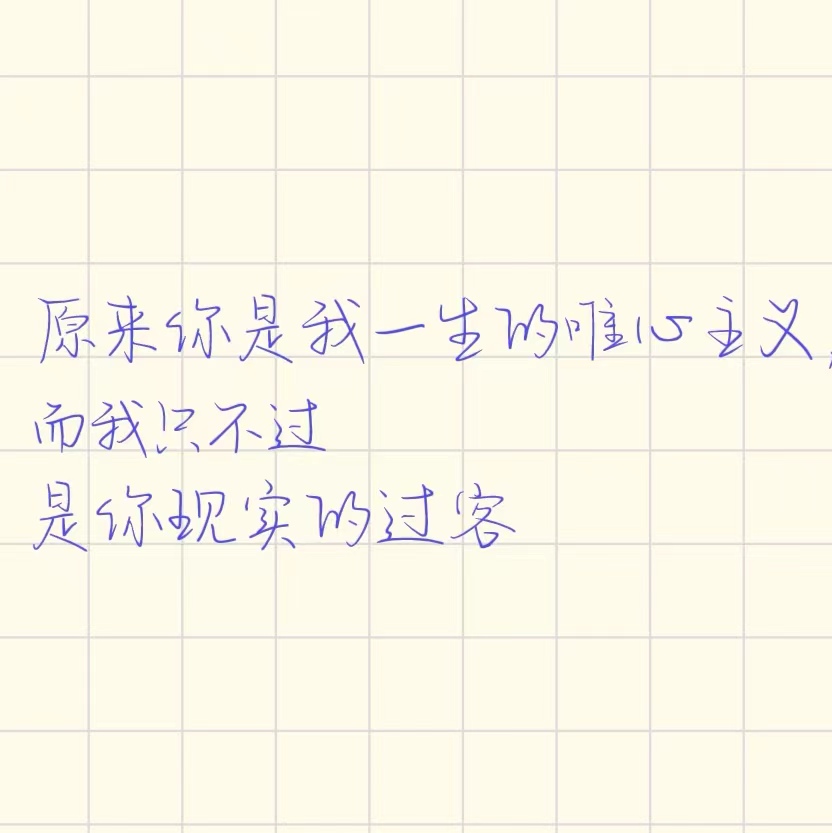 原来你是我一生的唯心主义,
而我只不过
是你现实的过客